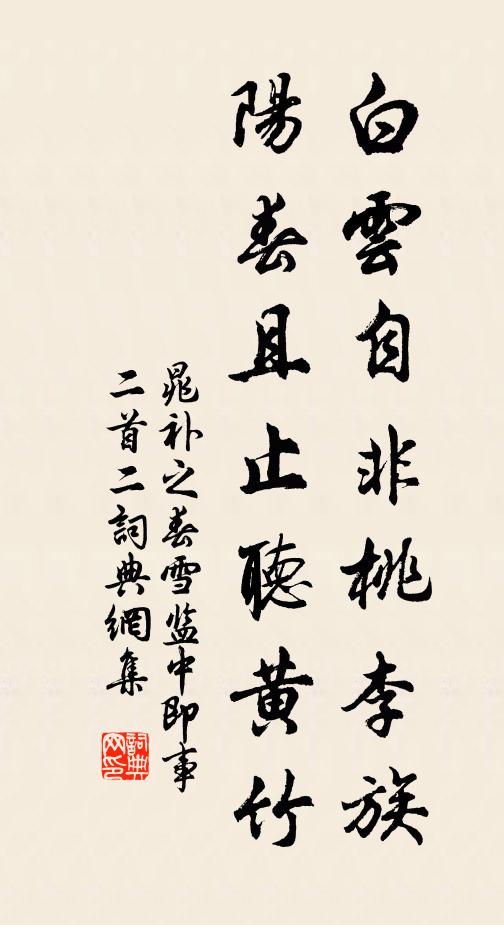 白雲自非桃李族
陽春且止聽黃竹
晁补之春雪监中即事
二首二詞典網集
詞典
网印